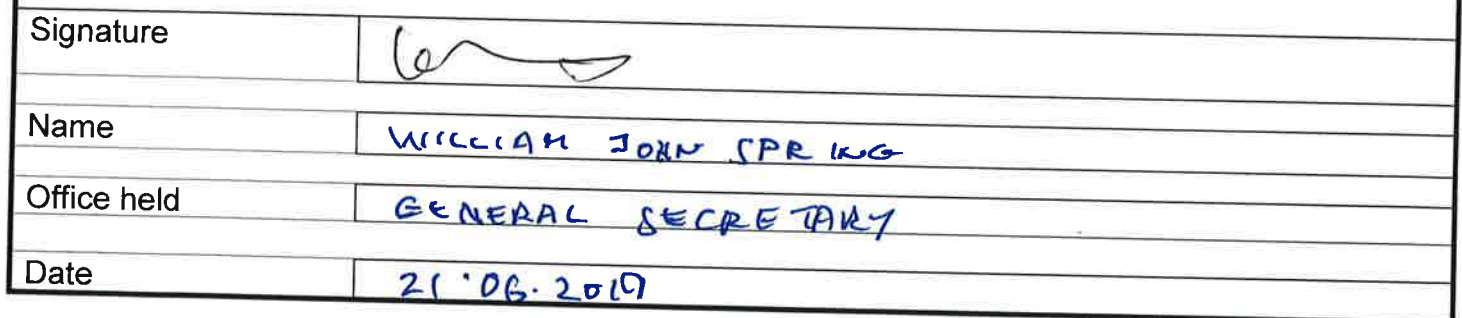 Signature
Name WILLIAM JOHN SPRING
Office held GENERAL SECRETARY
Date 21.06.2019